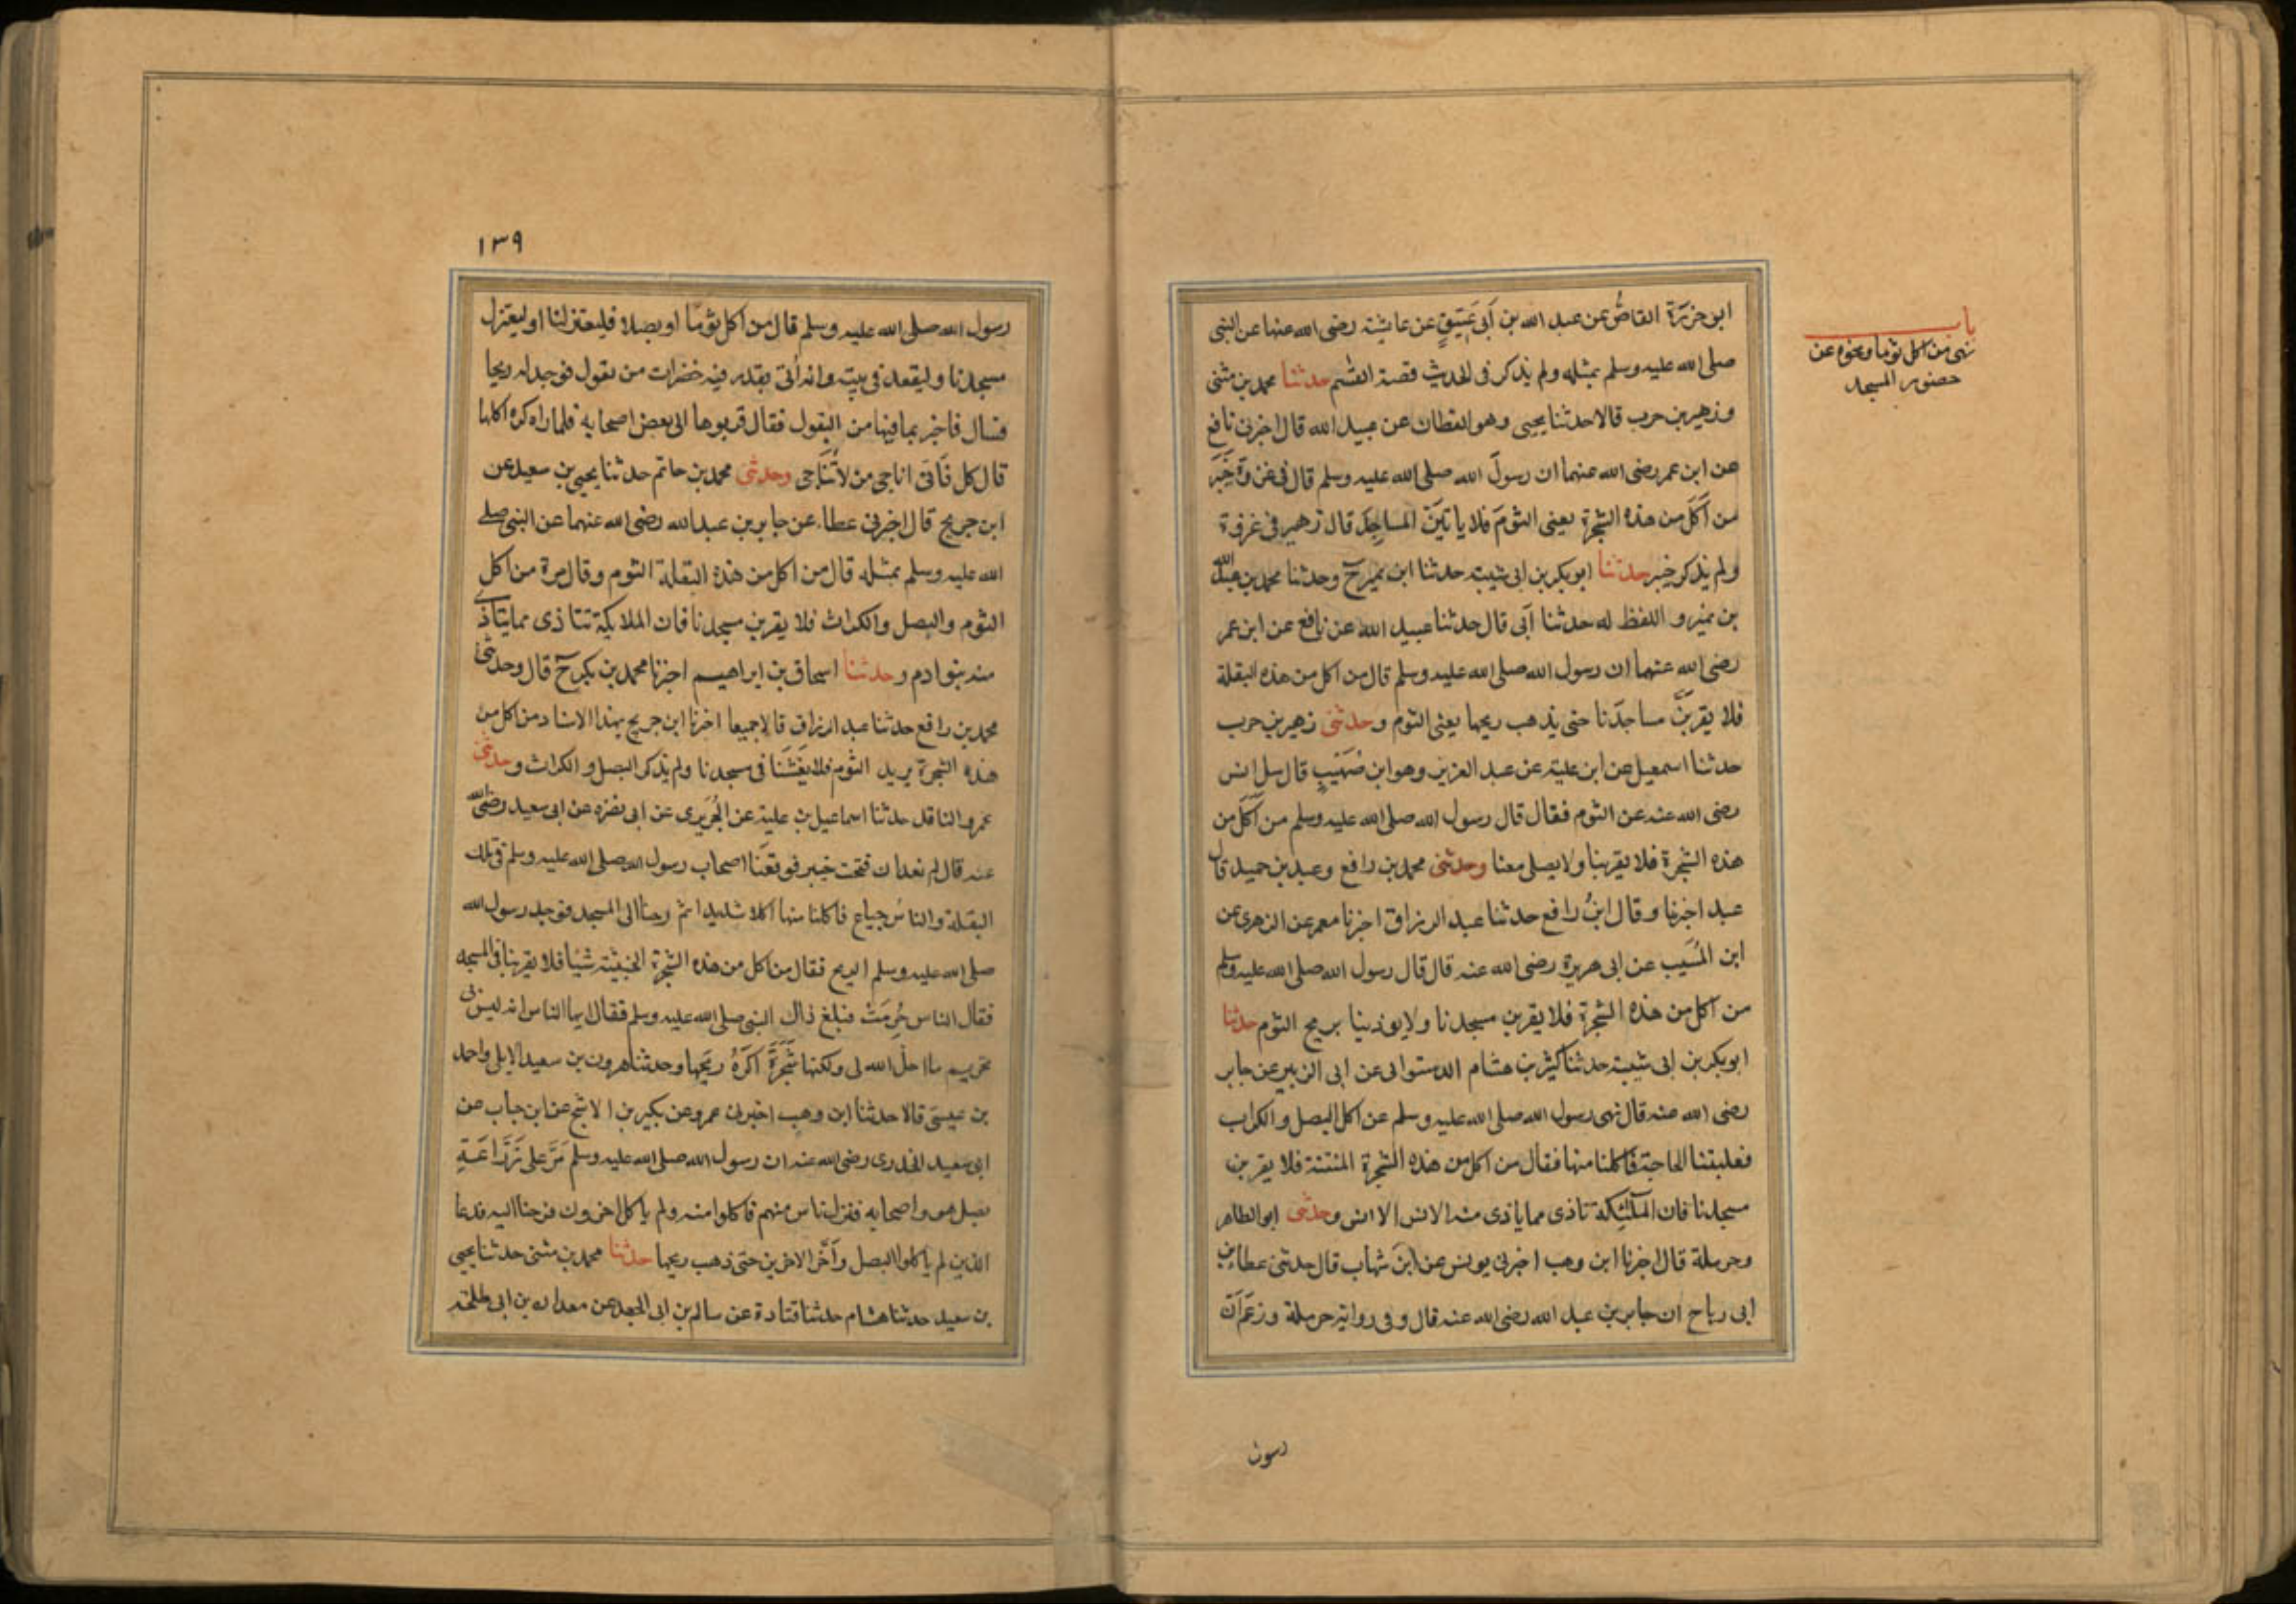 باب
نهى من اكل ثوما ونحوه عن
حضور المسجد
ابن حزرة القاصُّ عن عبد الله بن أبى عَتيقٍ عن عايشة رضى الله عنها عن النبى
صلى الله عليه وسلم بمثله ولم يذكر فى الحديث قصة القسم حدثنا محمد بن مثنى
وزهير بن حرب قالا حدثنا يحيى وهو القطان عن عبيد الله قال اخبرنى نافع
عن ابن عمر رضى الله عنهما ان رسولَ الله صلى الله عليه وسلم قال فى غزوة خَيبَر
من أكَلَ من هذه الشجرة يعنى الثومَ فلا ياتيَنَّ المساجِدَ قال زهير فى غزوة
ولم يذكر خيبر حدثنا ابو بكر بن ابى شيبة حدثنا ابن نمير ح وحدثنا محمد بن عبد الله
بن نمير و اللفظ له حدثنا أبى قال حدثنا عبيد الله عن نافع عن ابن عمر
رضى الله عنهما ان رسول الله صلى الله عليه وسلم قال من اكل من هذه البقلة
فلا يقربَنَّ مساجدَنا حتى يذهب ريحها يعنى الثوم وحدثنى زهير بن حرب
حدثنا اسمعيل عن ابن علية عن عبد العزيز وهو ابن صُهَيبٍ قال سل انس
رضى الله عنه عن الثوم فقال قال رسول الله صلى الله عليه وسلم من أكَلَ من
هذه الشجرة فلا يقربنا ولا يصلى معنا وحدثنى محمد بن رافع وعبد بن حميد قال
عبد اخبرنا وقال ابنُ رافع حدثنا عبد الرزاق اخبرنا معمر عن الزهرى عن
ابن المُسَيب عن ابى هريرة رضى الله عنه قال قال رسول الله صلى الله عليه وسلم
من اكل من هذه الشجرة فلا يقربن مسجدنا ولا يوذينا بريح الثوم حدثنا
ابو بكر بن ابى شيبة حدثنا كثير بن هشام الدستوائى عن ابى الزبير عن جابر
رضى الله عنه قال نهى رسول الله صلى الله عليه وسلم عن اكل البصل و الكراث
فغلبتنا الحاجة فاكلنا منها فقال من اكل من هذه الشجرة المنتنة فلا يقربن
مسجدنا فان الملئيكة تاذى مما ياذى منه الانس وحدثنى ابو الطاهر
وحرملة قال اخبرنا ابن وهب اخبرنى يونس عن ابن شهاب قال حدثنى عطاء بن
ابى رباح ان جابر بن عبد الله رضى الله عنه قال وفى رواية حرملة وزعَمَ أنّ
رسول
١٣٩
رسول الله صلى الله عليه وسلم قال من اكل ثومًا او بصلا فليعتزلنا او ليعتزل
مسجدنا وليقعد فى بيته وانه أتى بقدر فيه خضرات من بقول فوجد له ريحا
فسال فاخبر بما فيها من البقول فقال قربوها الى بعض اصحابه فلما راه كره اكلها
قال كل فَانى اناجى من لا تناجى وحدثنى محمد بن حاتم حدثنا يحيى بن سعيد عن
ابن جريج قال اخبرنى عطاء عن جابر بن عبد الله رضى الله عنهما عن النبى صلى
الله عليه وسلم بمثله قال من اكل من هذه البقلة الثوم وقال مرة من اكل
الثوم والبصل والكراث فلا يقربن مسجدنا فان الملايكة تتاذى مما يتاذى
منه بنو ادم وحدثنا اسحاق بن ابراهيم اخبرنا محمد بن بكر ح قال وحدثنى
محمد بن رافع حدثنا عبد الرزاق قالا جميعا اخبرنا ابن جريج بهذا الاسناد من اكل من
هذه الشجرة يريد الثوم فلا يغشَنا فى مسجدنا ولم يذكر البصل و الكراث وحدثنى
عمرو الناقد حدثنا اسماعيل بن علية عن الجُرَيرى عن ابى نضره عن ابى سعيد رضى الله
عنه قال لم نعد ان فتحت خيبر فوقعَنا اصحاب رسول الله صلى الله عليه وسلم فى تلك
البقلة والناسُ جياع فاكلنا منها اكلا شديدا ثم رحنا الى المسجد فوجد رسول الله
صلى الله عليه وسلم الريح فقال من اكل من هذه الشجرة الخبيثة شيًا فلا يقربنا فى المسجد
فقال الناس حُرمَتْ فبلغ ذاك النبى صلى الله عليه وسلم فقال ايها الناس انه ليس بى
تحريم ما احل الله لى ولكنها شَجَرَةٌ اكرَهُ ريحَها وحدثنا هرون بن سعيد الايلى واحمد
بن عيسى قالا حدثنا ابن وهب اخبرنى عمرو عن بكير بن الاشج عن ابن خباب عن
ابى سعيد الخدرى رضى الله عنه ان رسول الله صلى الله عليه وسلم مَرَّ على زَرَّاعَةِ
بصل هو واصحابه فنزل ناس منهم فاكلوا منه ولم ياكل اخرون فرحنا اليه فدعا
الذين لم ياكلوا البصل وأخّر الاخرين حتى ذهب ريحها حدثنا محمد بن مثنى حدثنا يحيى
بن سعيد حدثنا هشام حدثنا قتادة عن سالم بن ابى الجعد عن معدان بن ابى طلحة